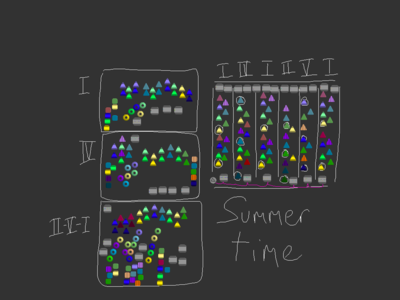 I IV I II V I
I
IV
II-V-I
Summer
time